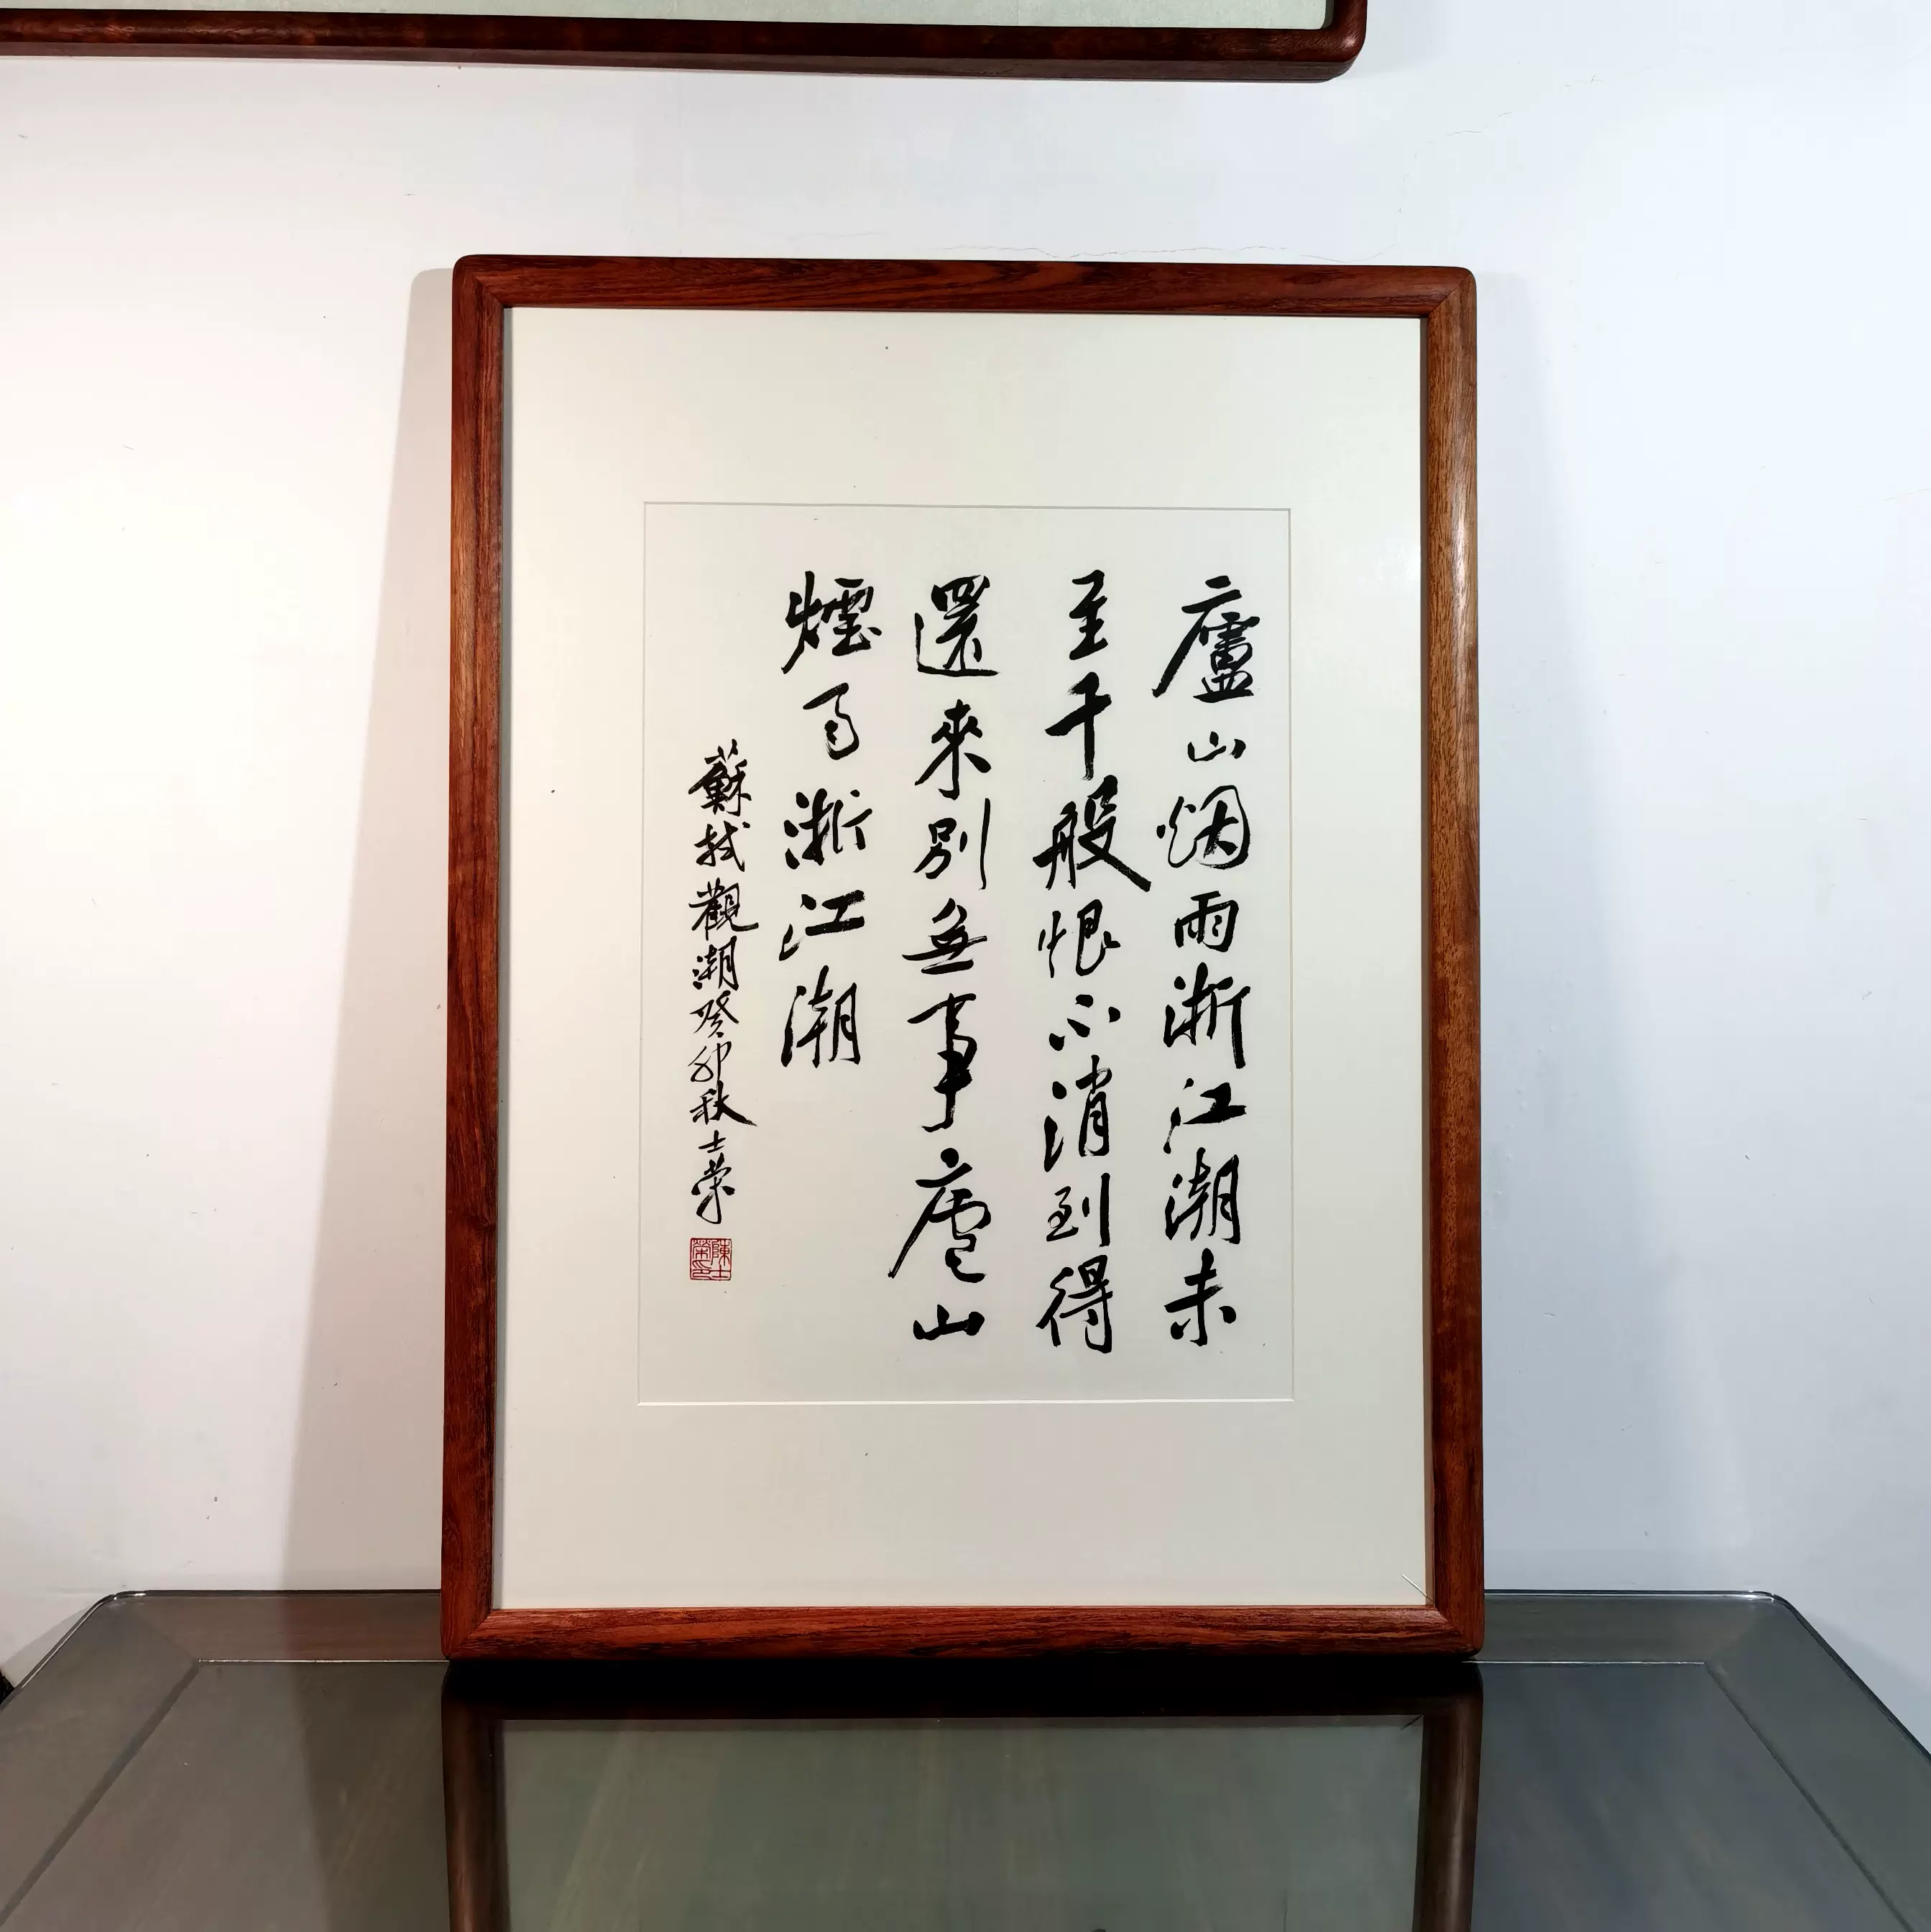 廬山烟雨浙江潮未
至千般恨不消到得
還來別無事廬山
煙雨浙江潮
蘇軾觀潮癸卯秋士榮
陳士榮印